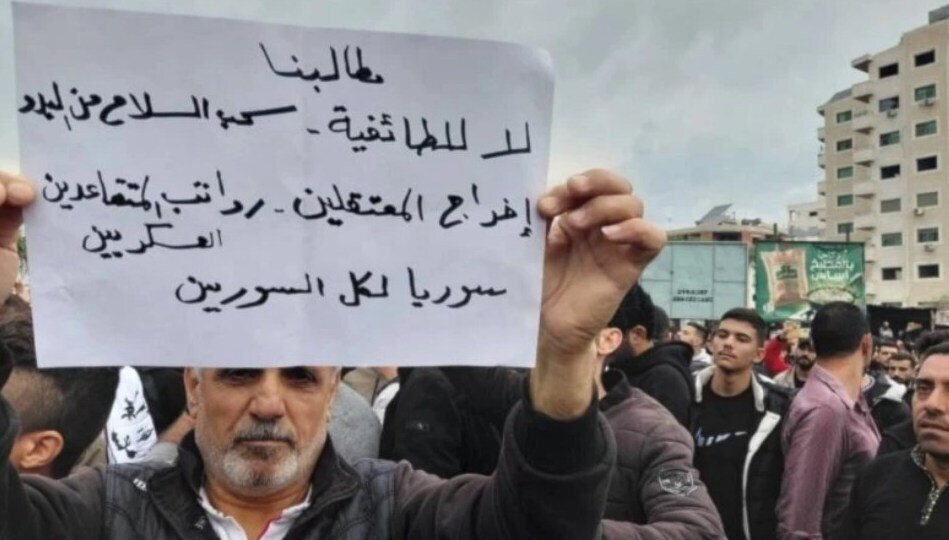 مطالبنا
لا للطائفية - سحب السلاح من البدو
إخراج المعتقلين - رواتب المتقاعدين
العسكريين
سوريا لكل السوريين